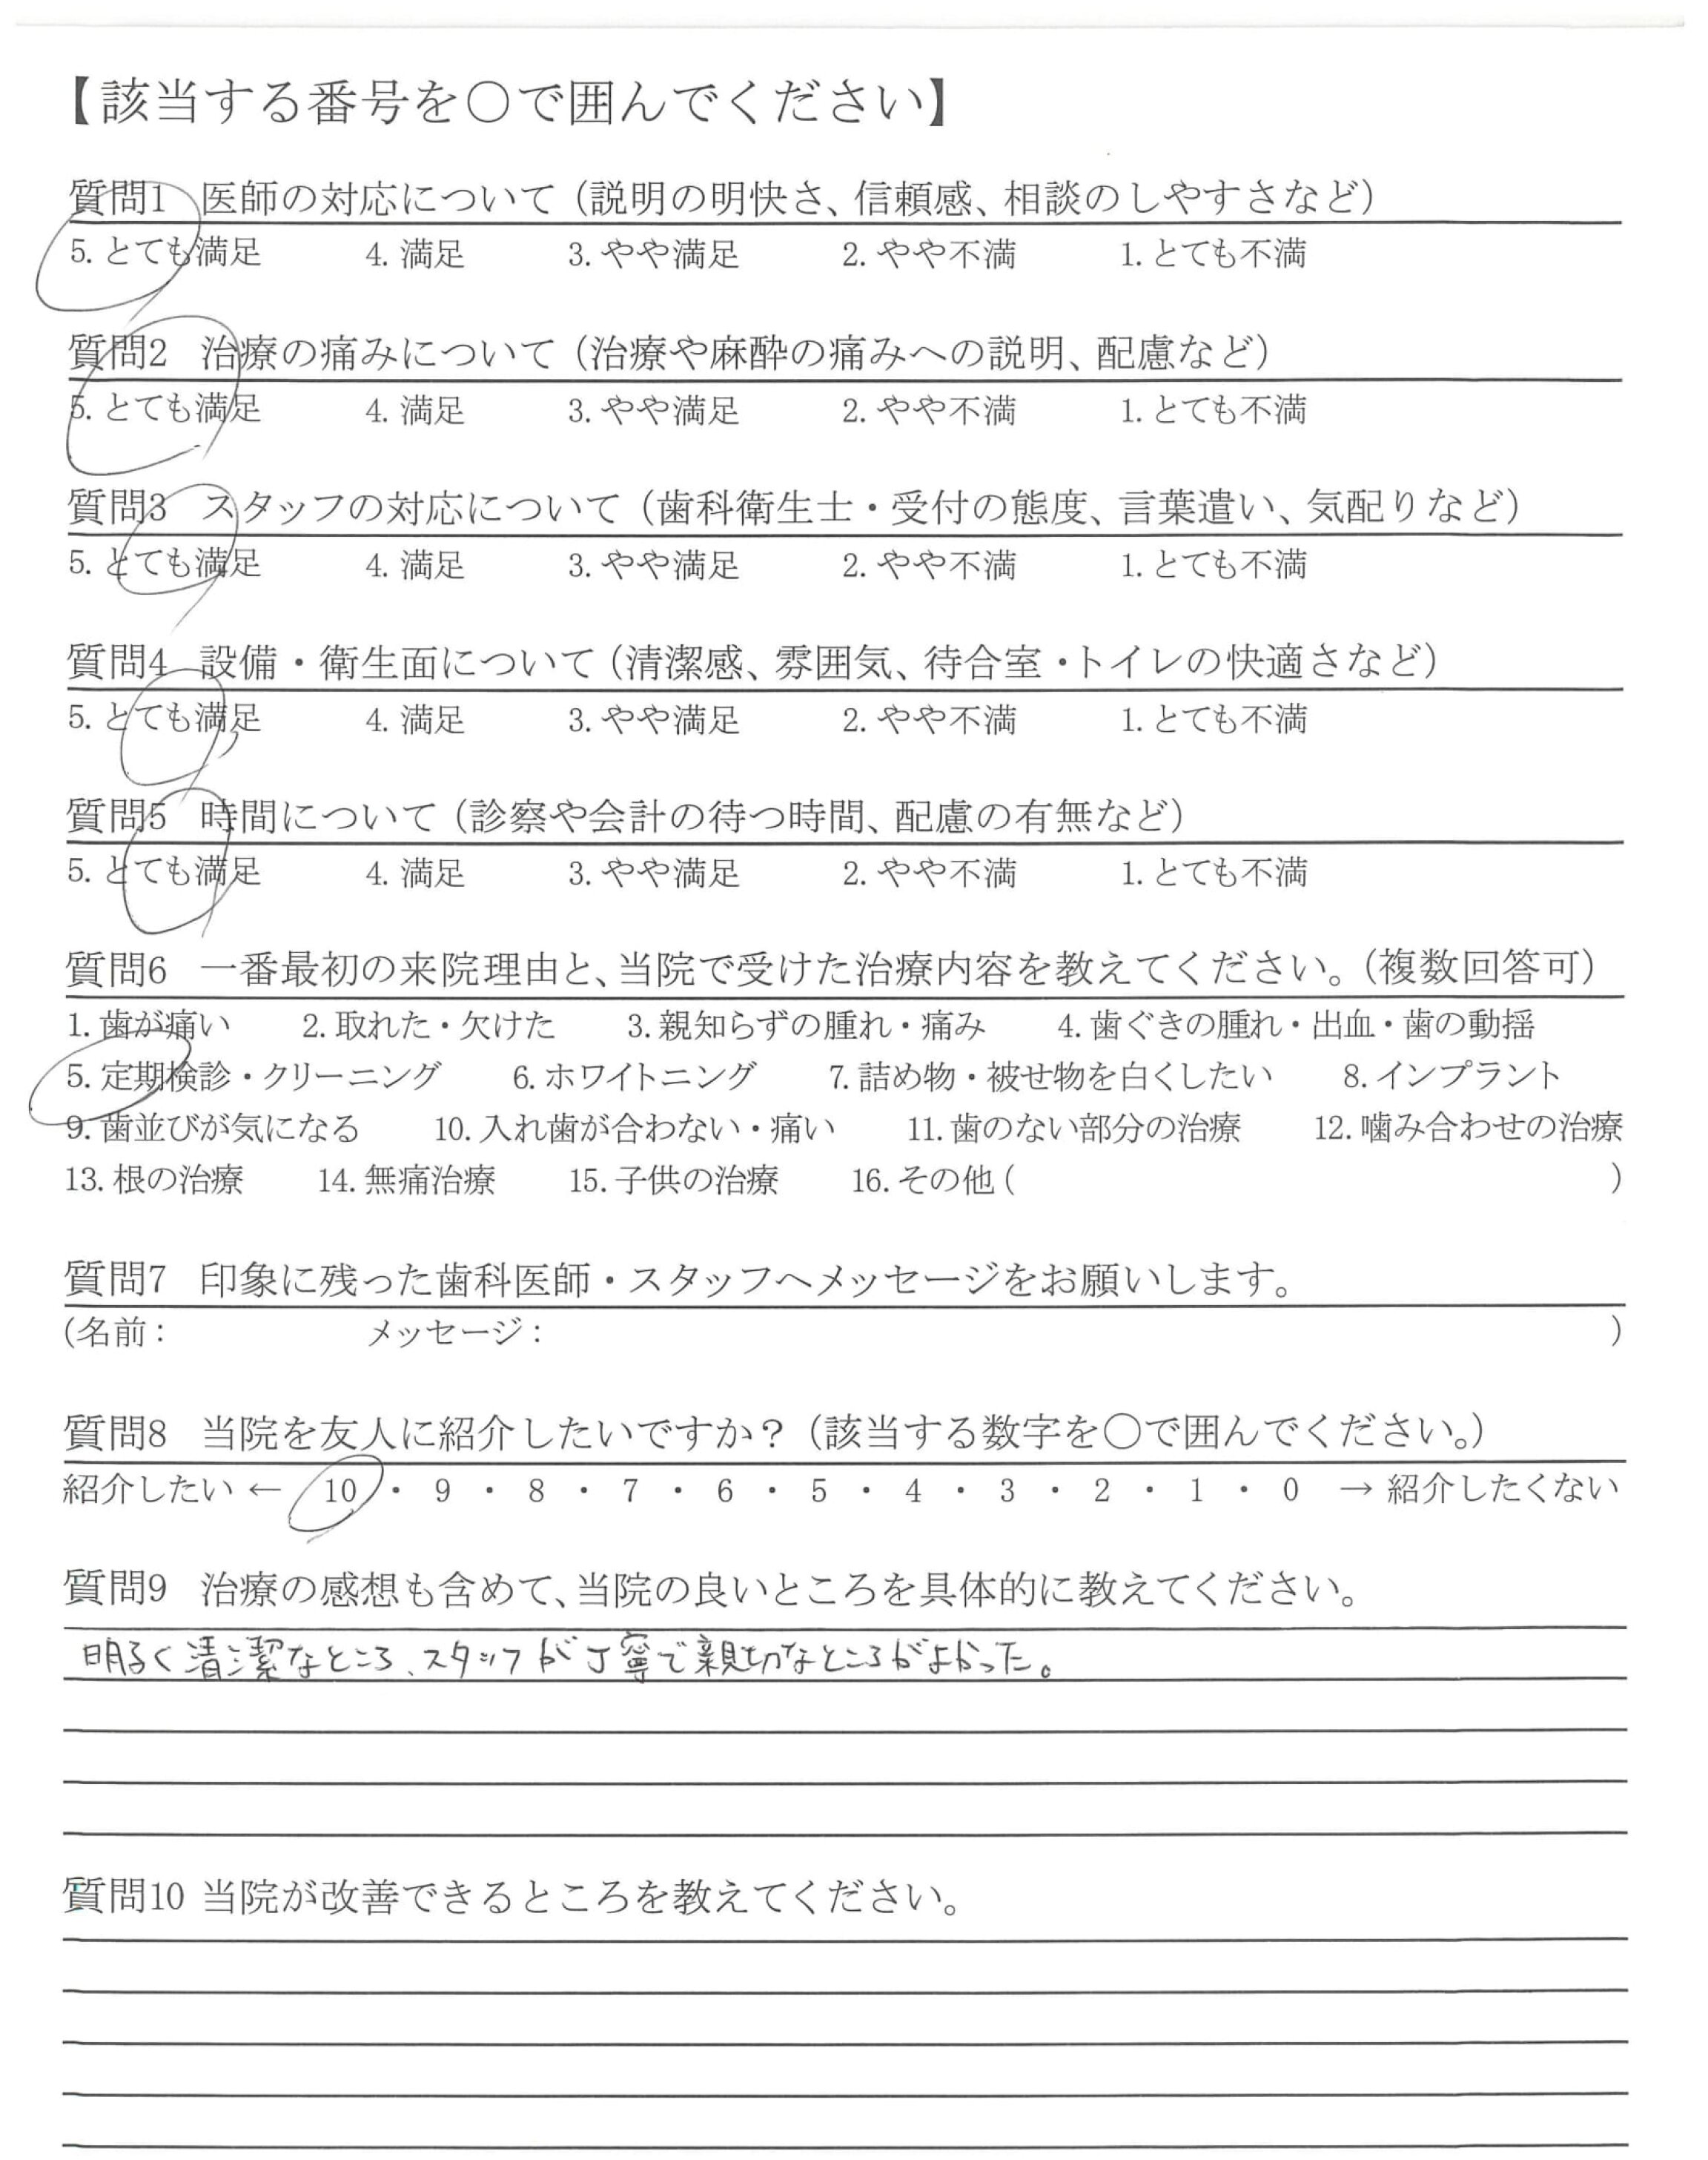 【該当する番号を○で囲んでください】
質問1 医師の対応について（説明の明快さ、信頼感、相談のしやすさなど）
5. とても満足 4. 満足 3. やや満足 2. やや不満 1. とても不満
質問2 治療の痛みについて（治療や麻酔の痛みへの説明、配慮など）
5. とても満足 4. 満足 3. やや満足 2. やや不満 1. とても不満
質問3 スタッフの対応について（歯科衛生士・受付の態度、言葉遣い、気配りなど）
5. とても満足 4. 満足 3. やや満足 2. やや不満 1. とても不満
質問4 設備・衛生面について（清潔感、雰囲気、待合室・トイレの快適さなど）
5. とても満足 4. 満足 3. やや満足 2. やや不満 1. とても不満
質問5 時間について（診察や会計の待つ時間、配慮の有無など）
5. とても満足 4. 満足 3. やや満足 2. やや不満 1. とても不満
質問6 一番最初の来院理由と、当院で受けた治療内容を教えてください。（複数回答可）
1. 歯が痛い 2. 取れた・欠けた 3. 親知らずの腫れ・痛み 4. 歯ぐきの腫れ・出血・歯の動揺
5. 定期検診・クリーニング 6. ホワイトニング 7. 詰め物・被せ物を白くしたい 8. インプラント
9. 歯並びが気になる 10. 入れ歯が合わない・痛い 11. 歯のない部分の治療 12. 噛み合わせの治療
13. 根の治療 14. 無痛治療 15. 子供の治療 16. その他 ( )
質問7 印象に残った歯科医師・スタッフへメッセージをお願いします。
(名前: メッセージ: )
質問8 当院を友人に紹介したいですか？（該当する数字を○で囲んでください。）
紹介したい ← 10 ・ 9 ・ 8 ・ 7 ・ 6 ・ 5 ・ 4 ・ 3 ・ 2 ・ 1 ・ 0 → 紹介したくない
質問9 治療の感想も含めて、当院の良いところを具体的に教えてください。
明るく清潔なところ、スタッフが丁寧で親切なところがよかった。
質問10 当院が改善できるところを教えてください。